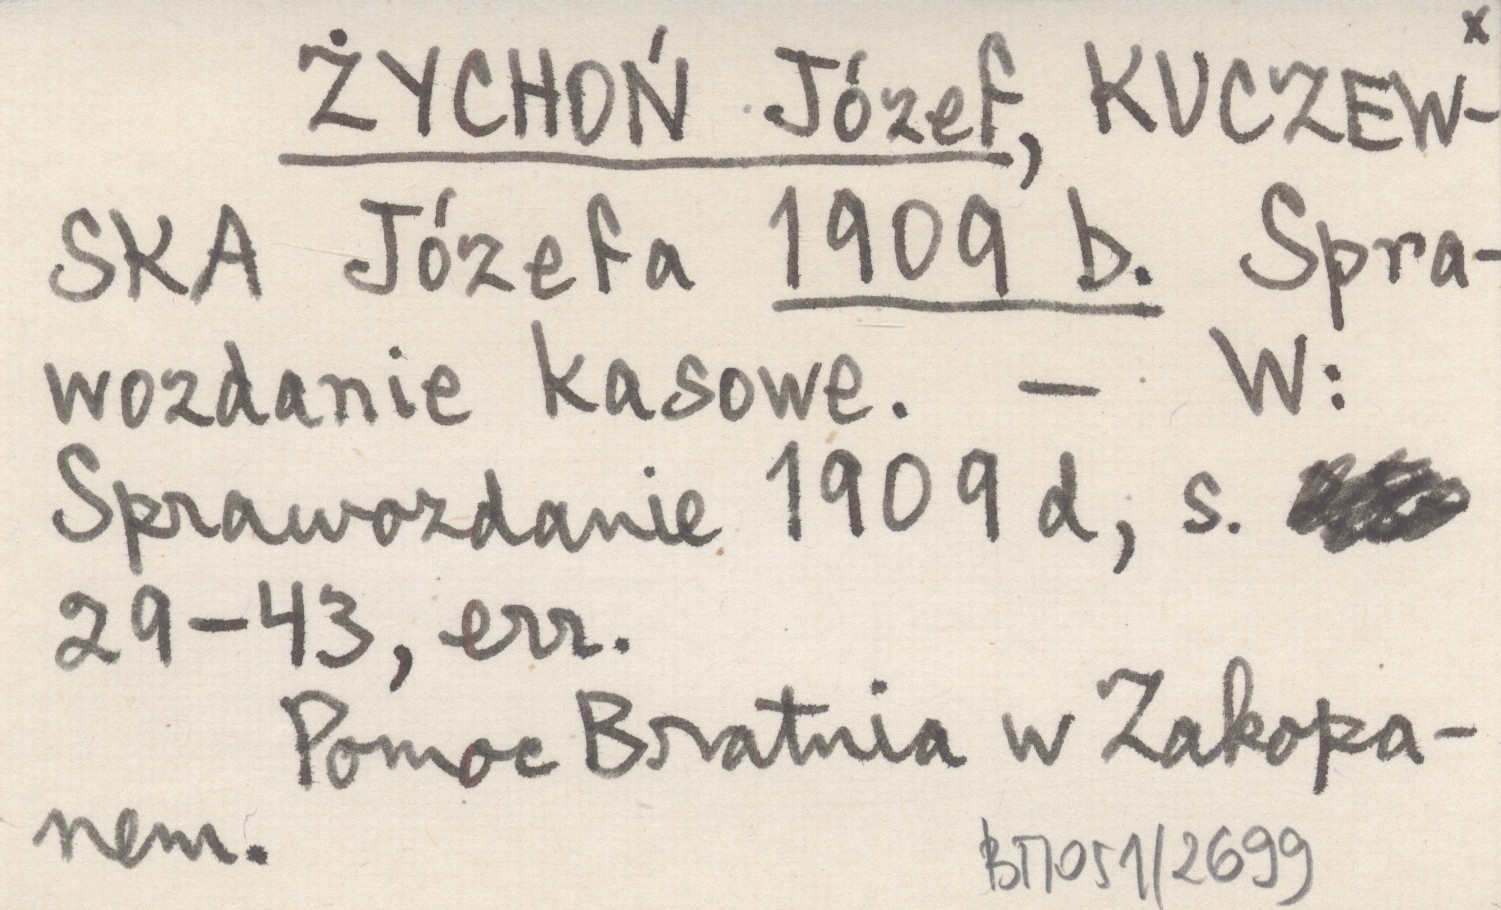 x
ŻYCHOŃ Józef, KUCZEW-
SKA Józefa 1909 b. Spra-
wozdanie kasowe. — W:
Sprawozdanie 1909 d, s.
29-43, err.
Pomoc Bratnia w Zakopa-
nem.
051/2699